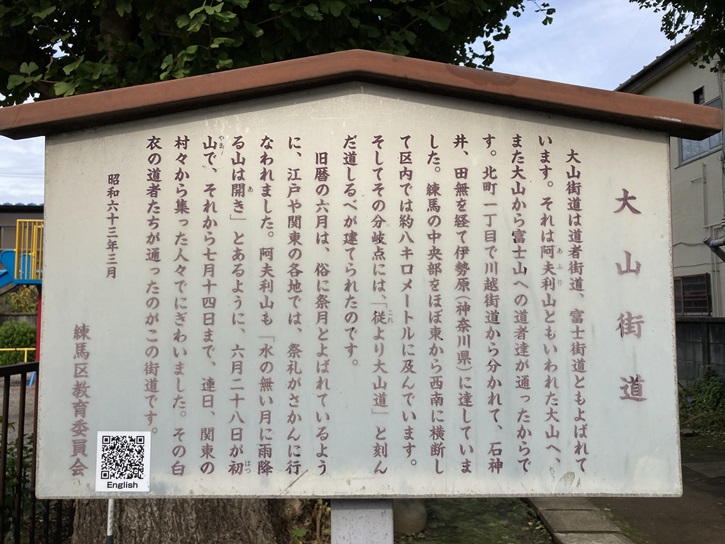 大山街道
大山街道は道者街道、富士街道ともよばれて
います。それは阿夫利山ともいわれた大山へ、
また大山から富士山への道者達が通ったからで
す。北町一丁目で川越街道から分かれて、石神
井、田無を経て伊勢原(神奈川県)に達していま
した。練馬の中央部をほぼ東から西南に横断し
て区内では約八キロメートルに及んでいます。
そしてその分岐点には、「従より大山道」と刻ん
だ道しるべが建てられたのです。
旧暦の六月は、俗に祭月とよばれているよう
に、江戸や関東の各地では、祭礼がさかんに行
なわれました。阿夫利山も「水の無い月に雨降
る山は開き」とあるように、六月二十八日が初
山で、それから七月十四日まで、連日、関東の
村々から集った人々でにぎわいました。その白
衣の道者たちが通ったのがこの街道です。
昭和六十三年三月
練馬区教育委員会
English